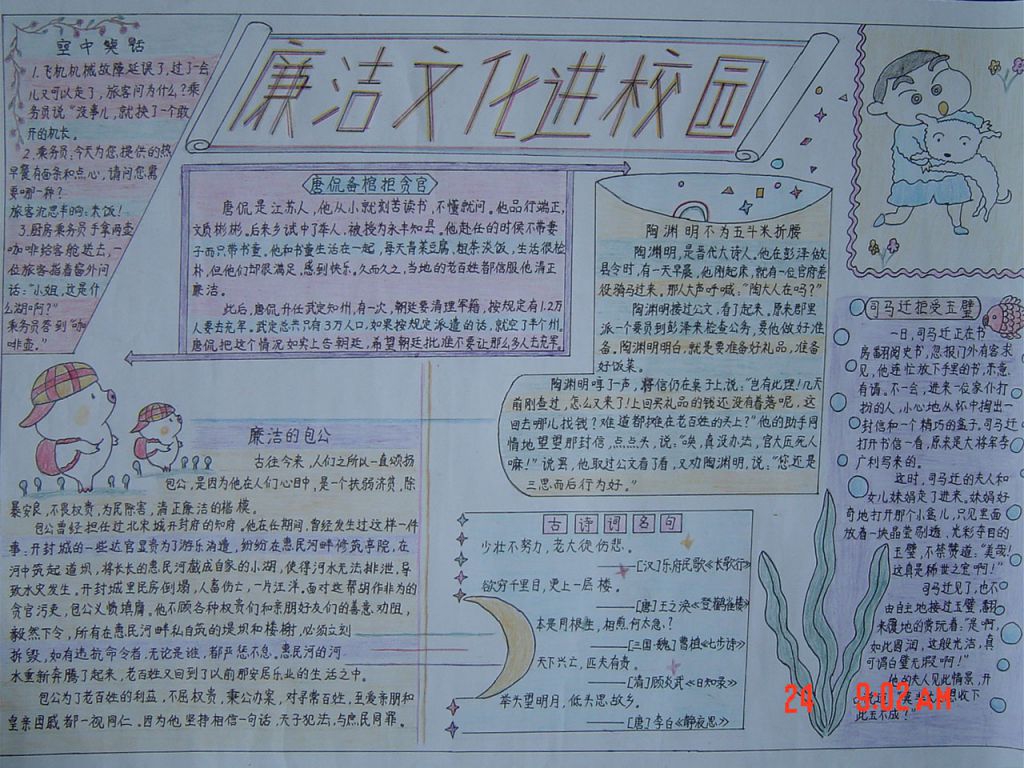 廉洁文化进校园
空中笑话
1.飞机机械故障延误了,过了一会
儿又可以走了,旅客问为什么?乘
务员说“没事儿,就换了一个敢
开的机长。
2.乘务员:今天为您提供的热
早餐有面条和点心,请问您需
要哪一种?
旅客沉思半晌:米饭!
3.厨房乘务员手拿两壶
咖啡给客舱送去,一
位旅客指着窗外问
话:“小姐,这是什
么湖啊?”
乘务员答到“咖
啡壶。”
唐侃备棺拒贪官
唐侃是江苏人,他从小就刻苦读书,不懂就问。他品行端正,
文质彬彬。后来乡试中了举人,被授为永丰知县。他赴任的时侯不带妻
子而只带书童。他和书童生活在一起,每天青菜豆腐,粗茶淡饭,生活很俭
朴,但他们却很满足,感到快乐。久而久之,当地的老百姓都信服他清正
廉洁。
此后,唐侃升任武定知州,有一次,朝廷要清理军籍,按规定有1.2万
人要去充军。武定总共只有3万人口,如果按规定派遣的话,就空了半个州。
唐侃把这个情况如实上告朝廷,希望朝廷批准不要让那么多人去充军。
陶渊明不为五斗米折腰
陶渊明,是晋代大诗人。他在彭泽做
县令时,有一天早晨,他刚起床,就有一位官府差
役骑马过来,那人大声呼喊:“陶大人在吗?”
陶渊明接过公文,看了起来。原来郡里
派一个要员到彭泽来检查公务,要他做好准
备。陶渊明明白,就是要准备好礼品,准备
好饭菜。
陶渊明哼了一声,将信仍在桌子上,说:“岂有此理!几天
前刚查过,怎么又来了!上回买礼品的钱还没有着落呢,这
回去哪儿找钱?难道都摊在老百姓的头上?”他的助手同
情地望望那封信,点点头,说:“唉,真没办法,官大压死人
嘛!”说罢,他取过公文看了看,又劝陶渊明,说:“您还是
三思而后行为好。”
司马迁拒受玉璧
一日,司马迁正在书
房翻阅史书,忽报门外有客求
见,他连忙放下手里的书,示意
有请。不一会,进来一位家仆打
扮的人,小心地从怀中掏出一
封信和一个精巧的盒子,司马迁
打开书信一看,原来是大将军李
广利写来的。
这时,司马迁的夫人和
女儿妹娟走了进来。妹娟好
奇地打开那个小盒儿,只见里面
放着一块晶莹剔透,光彩夺目的
玉璧,不禁赞道:“美哉!
这真是稀世之宝啊!”
司马迁见了,也不
由自主地接过玉璧,翻
来覆地的赏玩着:“是啊,
如此圆润,这般光洁,真
可谓白璧无瑕啊!”
他的夫人见此情景,开
想收下
此玉不成?”
廉洁的包公
古往今来,人们之所以一直颂扬
包公,是因为他在人们心目中,是一个扶弱济贫,除
暴安良,不畏权贵,为民除害,清正廉洁的楷模。
包公曾经担任过北宋城开封府的知府。他在任期间,曾经发生过这样一件
事:开封城的一些达官显贵为了游乐消遣,纷纷在惠民河畔修筑亭院,在
河中筑起道坝,将长长的惠民河截成自家的小湖,使得河水无法排泄,导
致水灾发生。开封城里民房倒塌,人畜伤亡,一片汪洋。面对这帮胡作非为的
贪官污吏,包公义愤填膺。他不顾各种权贵们和亲朋好友们的善意劝阻,
毅然下令,所有在惠民河畔私自筑的堤坝和楼榭,必须立刻
拆毁,如有违抗命令者,无论是谁,都严惩不怠。惠民河的河
水重新奔腾了起来,老百姓又回到了以前那安居乐业的生活之中。
包公为了老百姓的利益,不屈权贵,秉公办案,对寻常百姓,至爱亲朋和
皇亲国戚都一视同仁。因为他坚持相信一句话,天子犯法,与庶民同罪。
古诗词名句
少壮不努力,老大徒伤悲。
——[汉]乐府民歌《长歌行》
欲穷千里目,更上一层楼。
——[唐]王之涣《登鹳雀楼》
本是同根生,相煎何太急?
——[三国·魏]曹植《七步诗》
天下兴亡,匹夫有责。
——[清]顾炎武《日知录》
举头望明月,低头思故乡。
——[唐]李白《静夜思》
24 9:02 AM